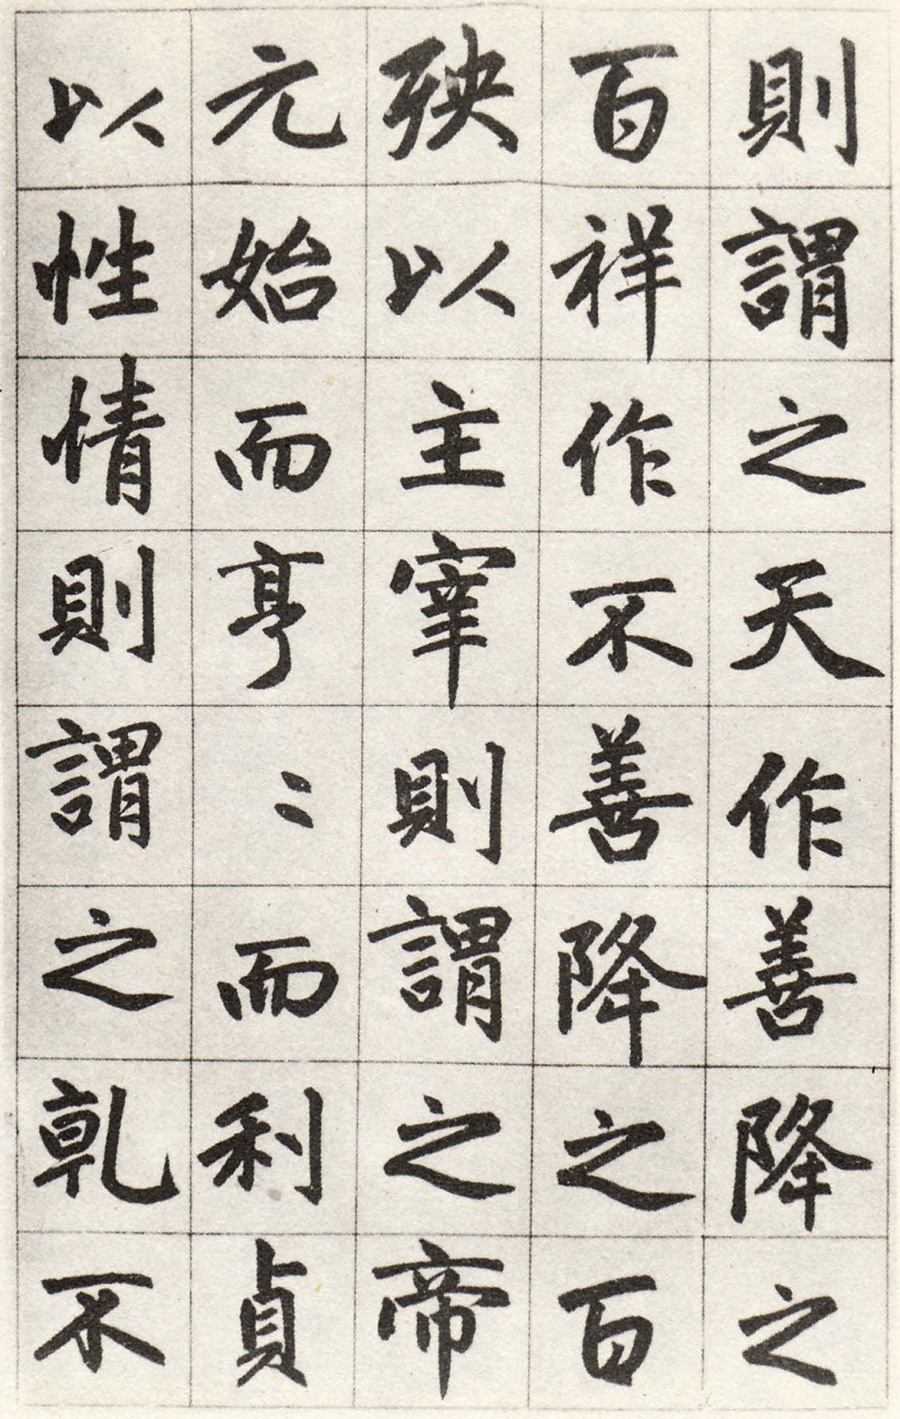 則謂之天作善降之
百祥作不善降之百
殃以主宰則謂之帝
元始而亨〻而利貞
以性情則謂之乾不